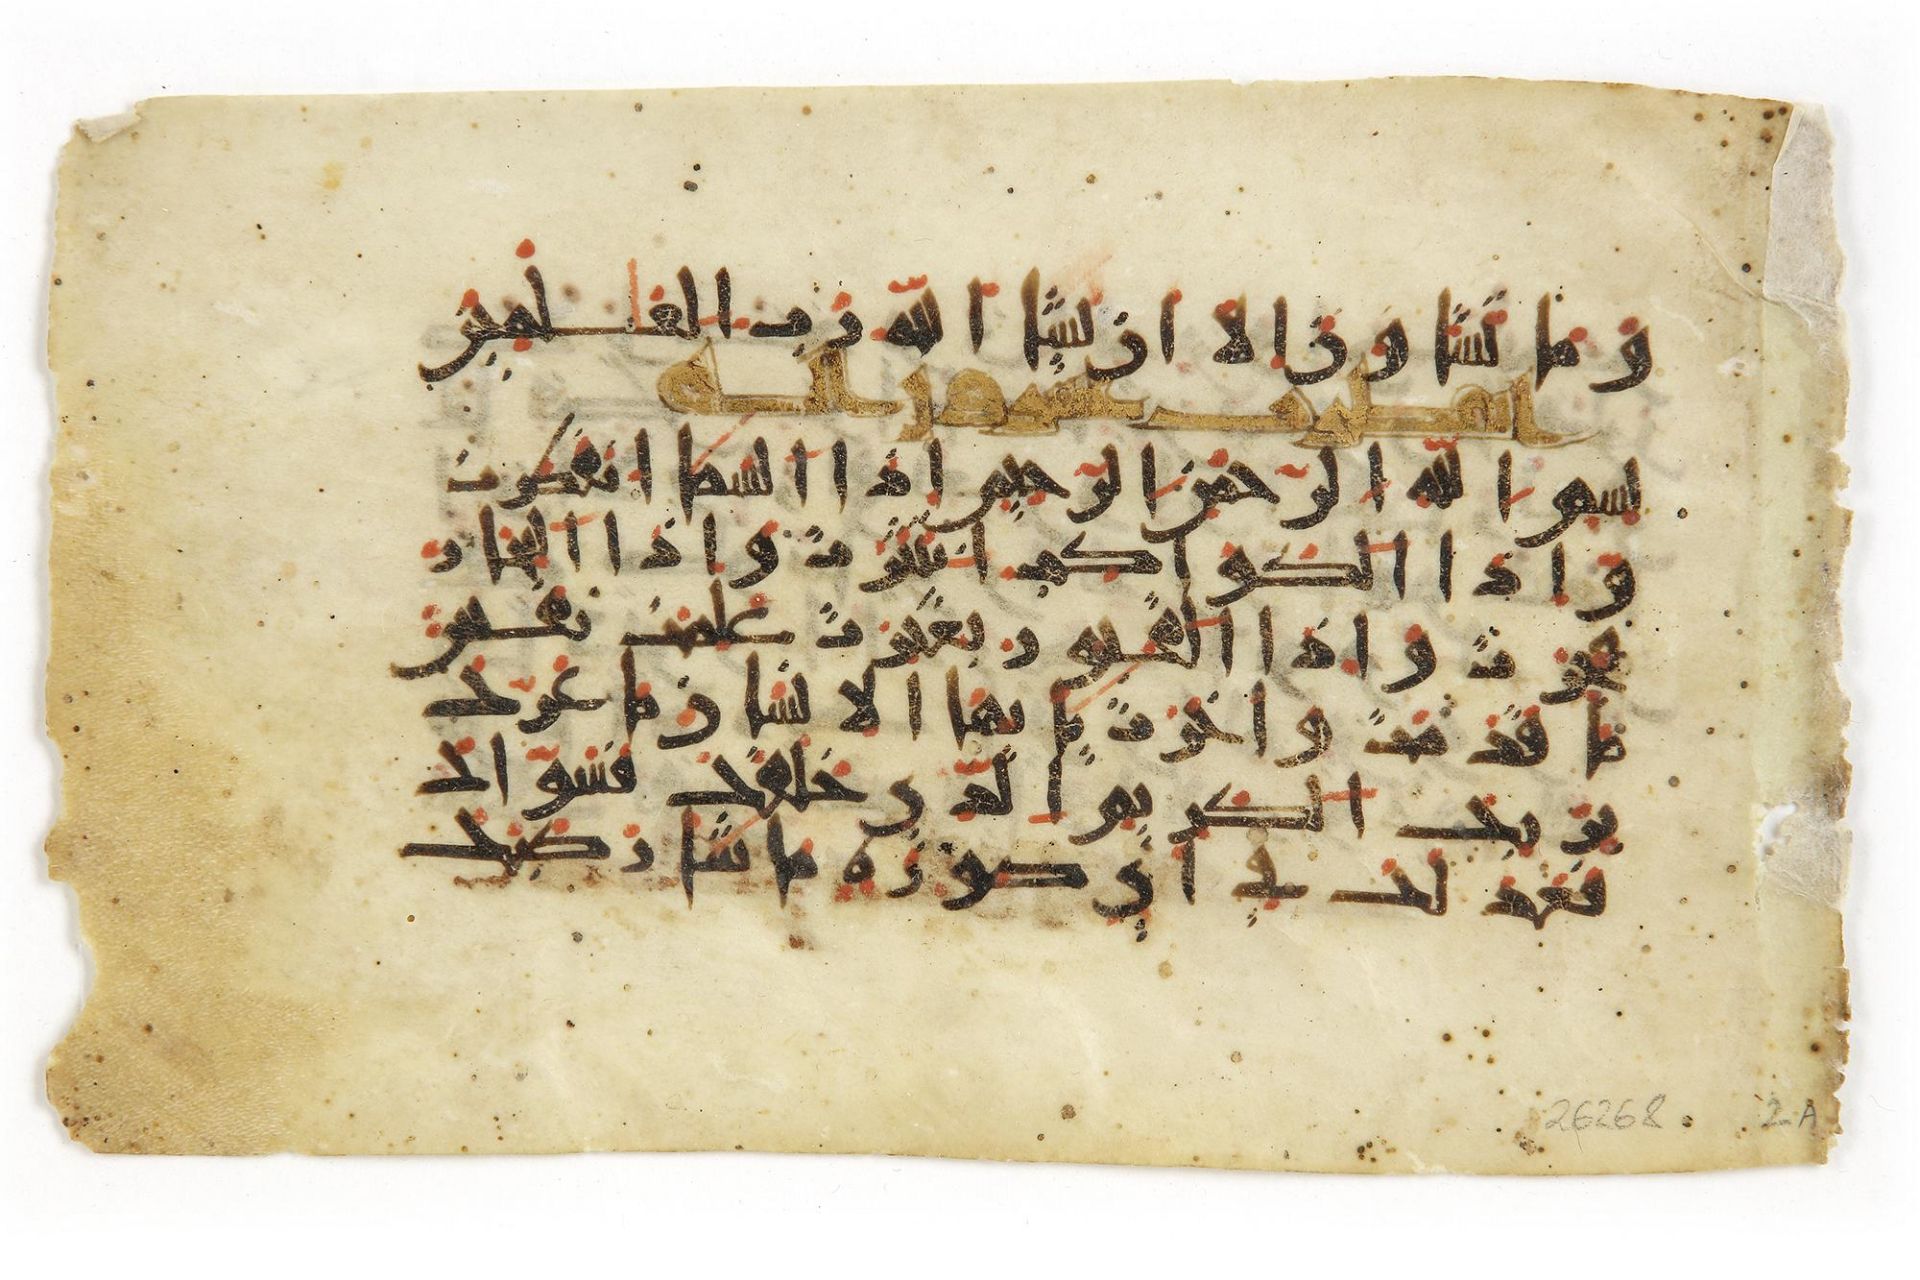 وما تشاون الا ان يشا الله رب العلمين
بسم الله الرحمن الرحيم اذا السما انفطرت
واذا الكواكب انتثرت واذا البحار
فجرت واذا القبور بعثرت علمت نفس
ما قدمت واخرت يايها الانسان ما غرك
بربك الكريم الذي خلقك فسواك
فعدلك في اي صورة ما شا ركبك
26268 2-A